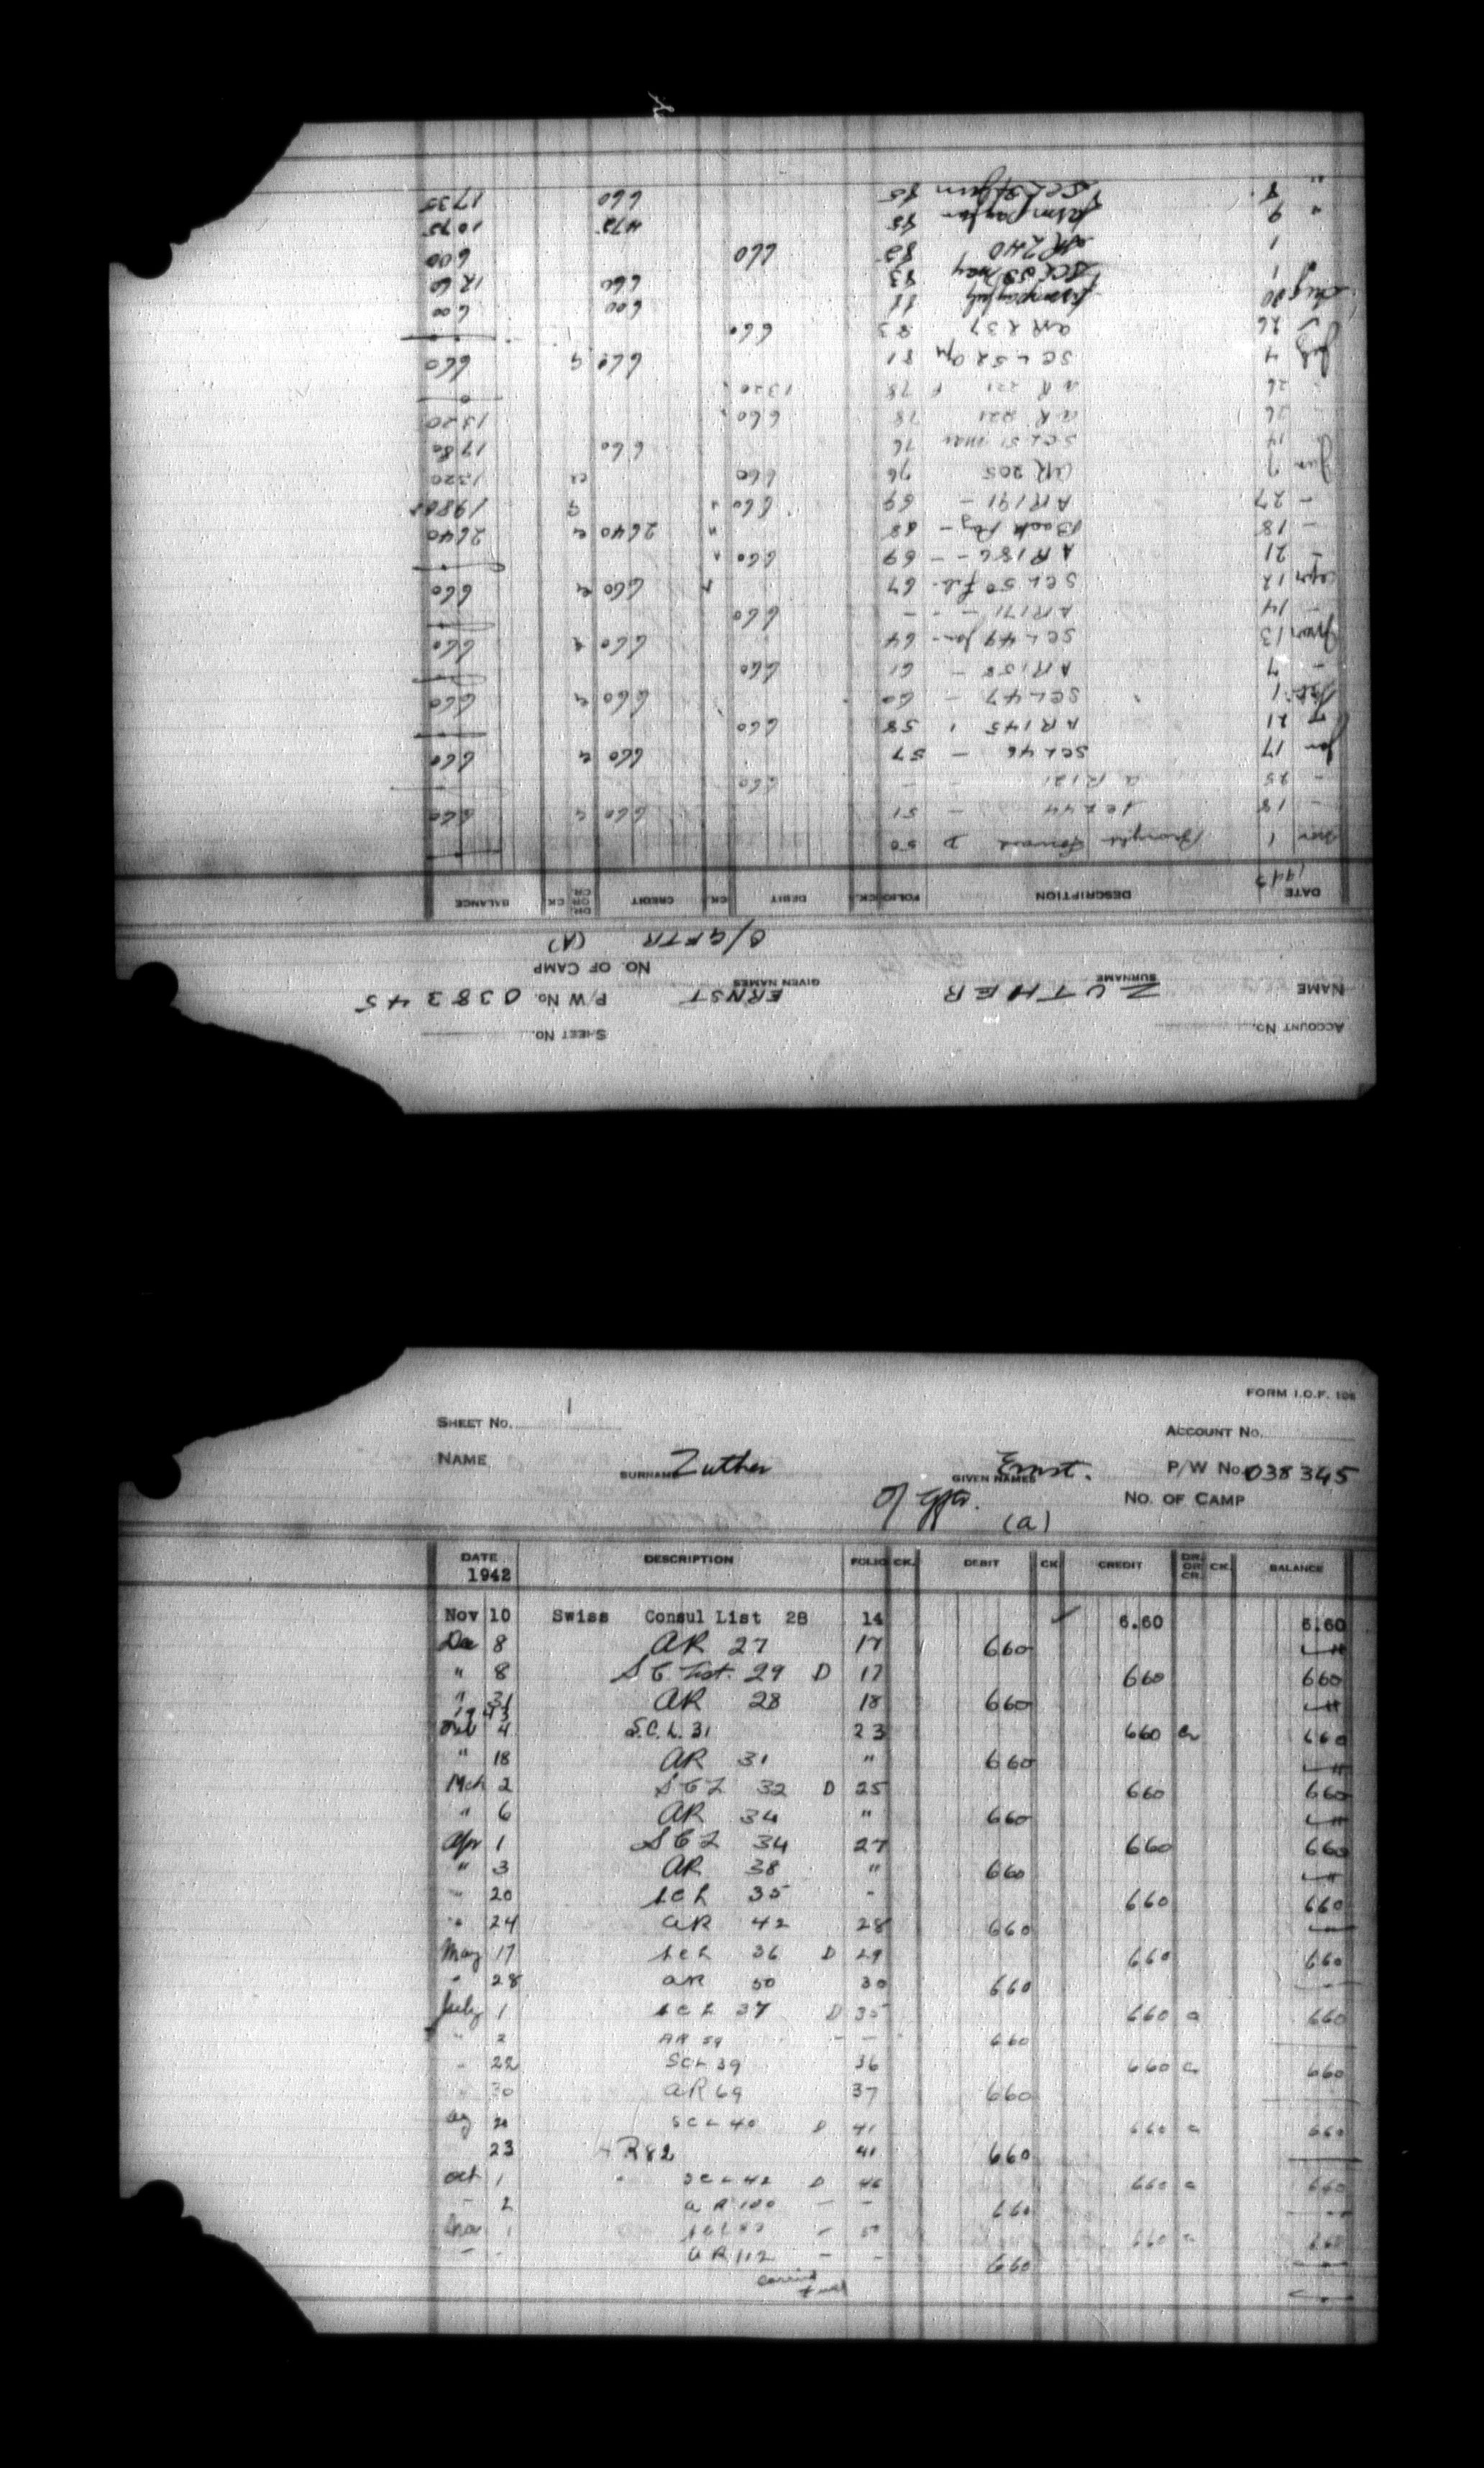 FORM I.O.F. 108
SHEET NO. 1 ACCOUNT NO.
NAME SURNAME Zuther GIVEN NAMES Ernst. P/W No. 038345
O/Gftr. (a) NO. OF CAMP
DATE 1942 DESCRIPTION FOLIO CK. DEBIT CK CREDIT DR. OR CR. CK. BALANCE
Nov 10 Swiss Consul List 28 14 ✓ 6.60 6.60
Dec 8 AR 27 17 660
" 8 S.C. List. 29 D 17 660 660
" 31 AR 28 18 660
1943
Feb 4 S.C.L. 31 23 660 Cr 660
" 18 AR 31 " 660
Mch 2 SCL 32 D 25 660 660
" 6 AR 34 " 660
Apr 1 SCL 34 27 660 660
" 3 AR 38 " 660
" 20 SCL 35 " 660 660
" 24 AR 42 28 660
May 17 SCL 36 D 29 660 660
" 28 AR 50 30 660
July 1 SCL 37 D 35 660 a 660
" 2 AR 59 – – 660
" 22 SCL 39 36 660 a 660
30 AR 69 37 660
Ag 20 SCL 40 D 41 660 a 660
23 AR 82 41 660
Oct 1 SCL 42 D 46 660 a 660
– 2 AR 100 – – 660
Nov 1 – 50 660 a 660
– AR 112 – – 660
Carried fwd
ACCOUNT NO. SHEET NO.
NAME ZUTHER SURNAME ERNST GIVEN NAMES P/W No. 038345
NO. OF CAMP
O/GFTR (A)
DATE 1943 DESCRIPTION FOLIO CK. DEBIT CK. CREDIT DR. OR CR. CK BALANCE
Nov 1 Brought Forward D 50
– 18 SCL 44 – 51 660 a 660
– 25 AR 121 – – 660
Jan 17 SCL 46 – 57 660 a 660
" 21 AR 145 58 660
Feb 1 SCL 47 – 60 660 a 660
– 7 AR 158 – 61 660
Mar 13 SCL 49 Jan – 64 660 a 660
– 14 AR 171 – – – 660
Apr 12 SCL 50 Feb – 67 660 a 660
– 21 AR 186 – – 69 660
– 18 Back Pay – 68 2640 a 2640
– 27 AR 191 – 69 660 1980
Jun 7 AR 205 76 660 cr 1320
14 SCL 51 Mar 76 660 1980
– 26 AR 221 78 660 1320
– 26 AR 221 78 1320
July 4 SCL 52 Ap 81 660 660
26 AR 237 83 660
600 600
Aug 1 SCL 53 May 83 660 1260
1 AR 240 660 600
" 9 85 475 1075
" 8 SCL 54 Jun 85 660 1735